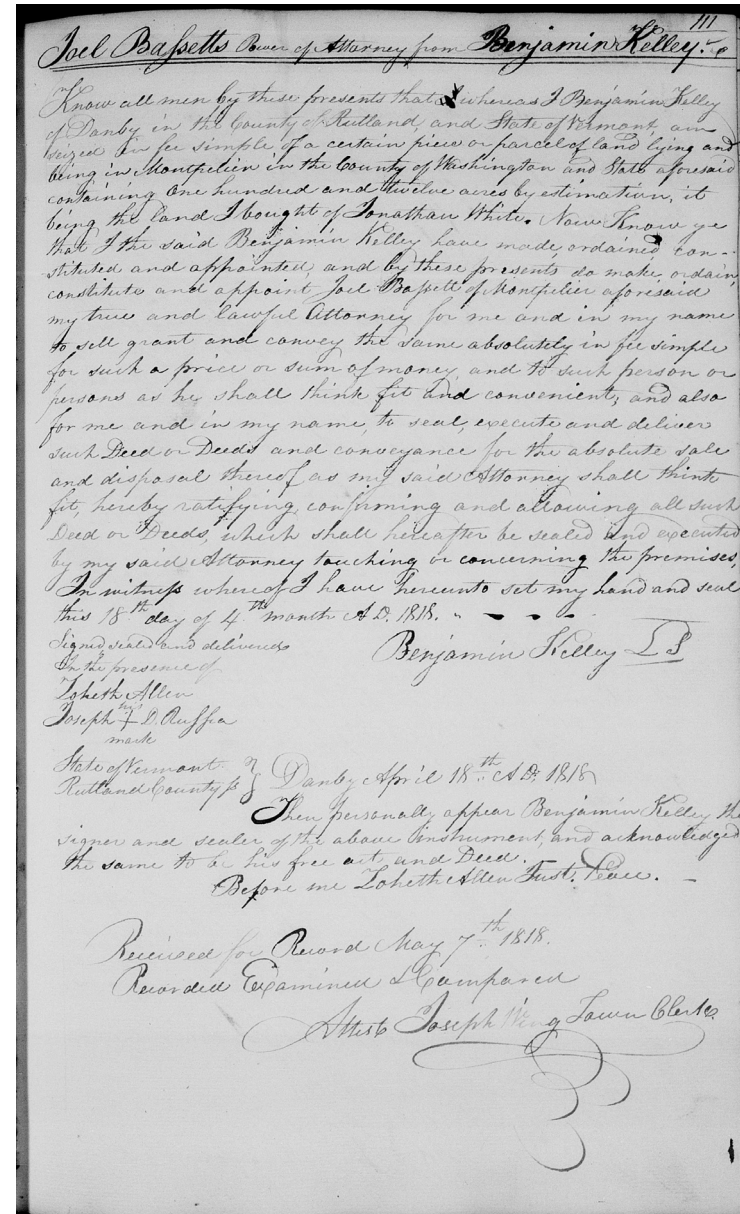 111
Joel Bassetts Power of Attorney from Benjamin Kelley.
Know all men by these presents that whereas I Benjamin Kelley
of Danby in the County of Rutland, and State of Vermont, am
seized in fee simple of a certain piece or parcel of land lying and
being in Montpelier in the County of Washington and State aforesaid
containing One hundred and twelve acres by estimation, it
being the land I bought of Jonathan White. Now Know ye
that I the said Benjamin Kelley have made, ordained, con-
stituted and appointed, and by these presents do make, ordain,
constitute and appoint Joel Bassett of Montpelier aforesaid
my true and lawful Attorney for me and in my name
to sell grant and convey the same absolutely in fee simple
for such a price or sum of money, and to such person or
persons as he shall think fit and convenient; and also
for me and in my name, to seal, execute and deliver
such Deed or Deeds and conveyance for the absolute sale
and disposal thereof as my said Attorney shall think
fit, hereby ratifying, confirming and allowing all such
Deed or Deeds, which shall hereafter be sealed and executed
by my said Attorney touching or concerning the premises,
In witness whereof I have hereunto set my hand and seal
this 18th day of 4th month A.D. 1818.
Signed, sealed and delivered
In the presence of
Benjamin Kelley LS
Allen
Joseph his + D. Russia
mark
State of Vermont
Rutland County ss } Danby April 18th A.D. 1818
Then personally appear Benjamin Kelley the
signer and sealer of the above instrument, and acknowledged
the same to be his free act and Deed.
Before me Allen Just. Peace.
Received for Record May 7th 1818.
Recorded Examined & Compared
Attest Joseph Wing Town Clerk